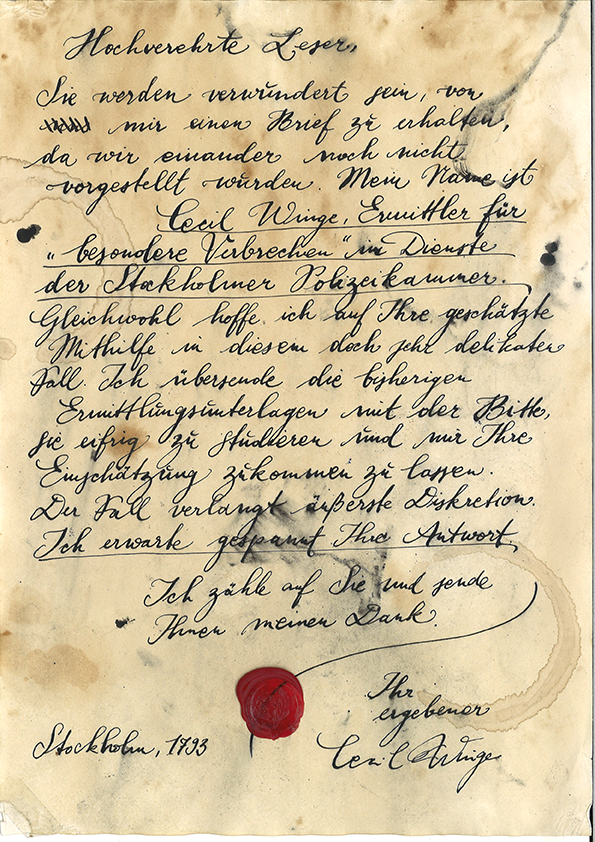 Hochverehrte Leser,
Sie werden verwundert sein, von
mir einen Brief zu erhalten,
da wir einander noch nicht
vorgestellt wurden. Mein Name ist
Cecil Winge, Ermittler für
„besondere Verbrechen" im Dienste
der Stockholmer Polizeikammer.
Gleichwohl hoffe ich auf Ihre geschätzte
Mithilfe in diesem doch sehr delikaten
Fall. Ich übersende die bisherigen
Ermittlungsunterlagen mit der Bitte,
sie eifrig zu studieren und mir Ihre
Einschätzung zukommen zu lassen.
Der Fall verlangt äußerste Diskretion.
Ich erwarte gespannt Ihre Antwort.
Ich zähle auf Sie und sende
Ihnen meinen Dank.
Ihr
ergebener
Stockholm, 1793
Cecil Winge